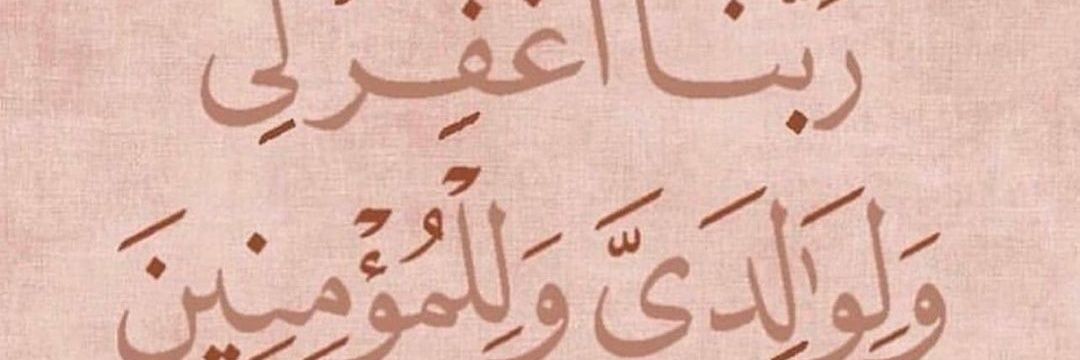 رَبَّنَا اغْفِرْ لِي
وَلِوَٰلِدَىَّ وَلِلْمُؤْمِنِينَ